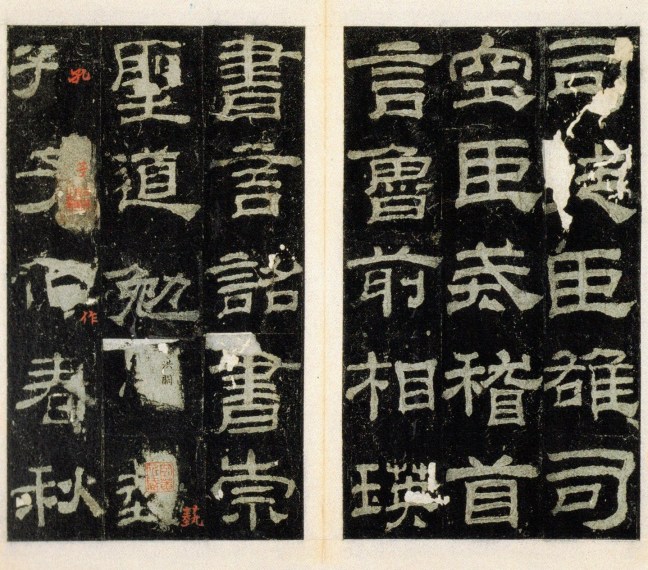 司徒臣雄司
空臣戒稽首
言魯前相瑛
書言詔書崇
聖道勉藝
孔作春秋
藝
孔
作